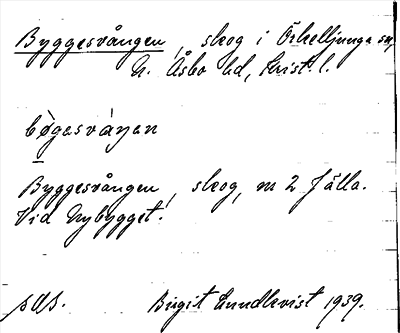 Byggesvången, skog i Örkelljunga sn,
N. Åsbo hd, Krist. l.
bø̀gasváŋan
Byggesvången, skog, m 2 Fälla.
Vid Nybygget.
Birgit Lundkvist 1939.